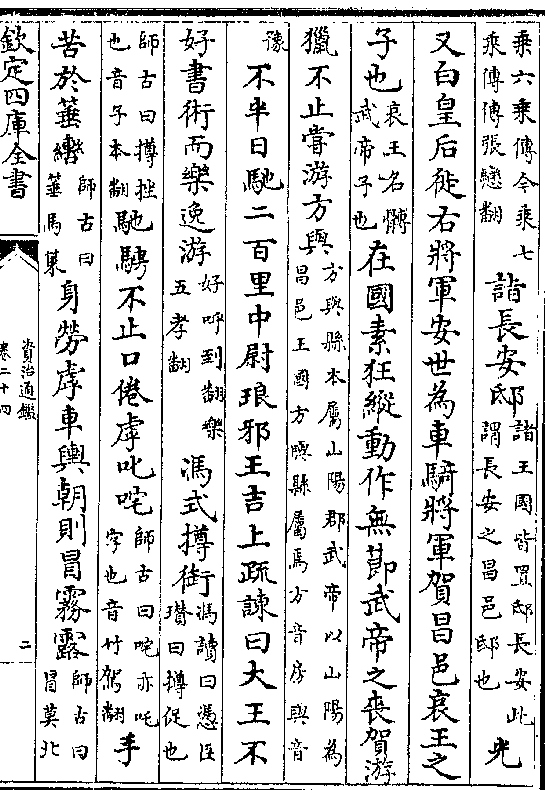 乘六乘傳今乘七
乘傳傳張戀翻
詣長安邸
諸王國皆置邸長安此
謂長安之昌邑邸也
光
又白皇后徙右將軍安世為車騎將軍賀昌邑哀王之
子也
哀王名髆
武帝子也
在國素狂縱動作無節武帝之喪賀游
獵不止嘗游方與
方與縣本屬山陽郡武帝以山陽為
昌邑王國方與縣屬焉方音房與音
豫
不半日馳二百里中尉琅邪王吉上疏諫曰大王不
好書術而樂逸游
好呼到翻樂
五孝翻
馮式撙銜
馮讀曰憑臣
瓚曰撙促也
師古曰撙挫
也音子本翻
馳騁不止口倦虖叱咤
師古曰咤亦吒
字也音竹駕翻
手
苦於箠轡
師古曰
箠馬策
身勞虖車輿朝則冒霧露
師古曰
冒莫北
欽定四庫全書
資治通鑑
卷二十四
二